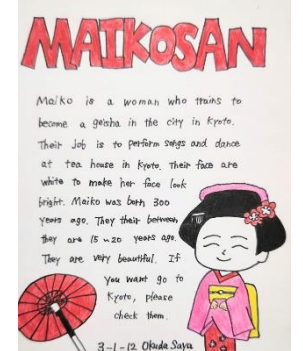 MAIKOSAN
Maiko is a woman who trains to
become a geisha in the city in Kyoto.
Their job is to perform songs and dance
at tea house in Kyoto. Their face are
white to make her face look
bright. Maiko was born 300
years ago. They their between
they are 15~20 years ago.
They are very beautiful. If
you want go to
Kyoto, please
check them.
3-1-12 Okuda Saya